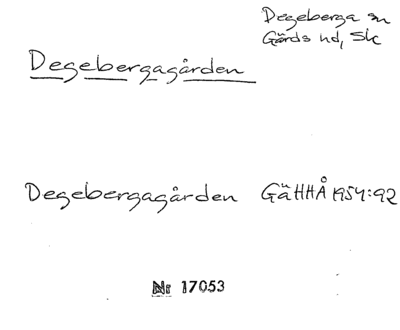 Degeberga sn
Gärds hd, Sk
Degebergagården
Degebergagården GäHHÅ 1954:92
Nr 17053